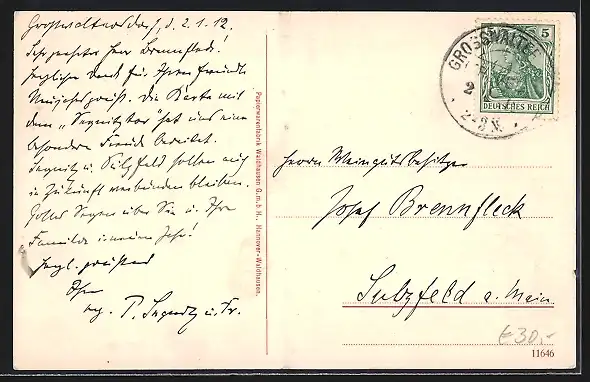 Großwaltersdorf, d. 2.1.12.
Sehr geehrter Herr Brennfleck!
Herzlichen Dank für Ihren freundl.
Neujahrsgruß. Die Karte mit
dem „Segnitztor" hat uns eine
besondere Freude bereitet.
Segnitz u. Sulzfeld sollen auch
in Zukunft verbunden bleiben.
Gottes Segen über Sie u. Ihre
Familie im neuen Jahr!
Herzl. grüßend
Ihr
P. Segnitz u. Fr.
Papierwarenfabrik Waldhausen G.m.b.H., Hannover-Waldhausen.
GROSSWALTE
2
2-3 N.
5
DEUTSCHES REICH
Herrn Weingutsbesitzer
Josef Brennfleck
Sulzfeld a. Main
€30,-
11646